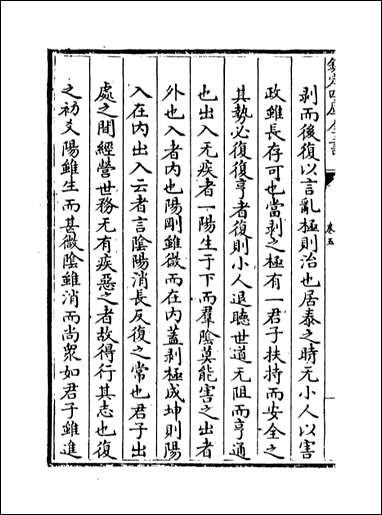 欽定四庫全書
卷五
剥而後復以言亂極則治也居泰之時无小人以害
政雖長存可也當剥之極有一君子扶持而安全之
其勢必復復亨者復則小人退聽世道无阻而亨通
也出入无疾者一陽生于下而羣陰莫能害之出者
外也入者内也陽剛雖微而在内蓋剥極成坤則陽
入在内出入云者言陰陽消長反復之常也君子出
處之間經營世務无有疾惡之者故得行其志也復
之初爻陽雖生而甚微陰雖消而尚衆如君子雖進